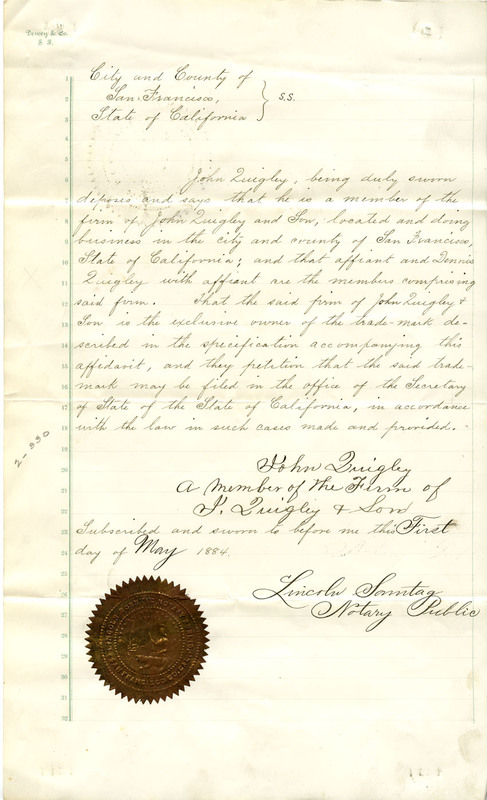 Dewey & Co.
S. F.
City and County of
San Francisco,
State of California } S.S.
John Quigley, being duly sworn
deposes and says that he is a member of the
firm of John Quigley and Son, located and doing
business in the city and county of San Francisco,
State of California; and that affiant and Dennis
Quigley with affiant are the members comprising
said firm. That the said firm of John Quigley &
Son is the exclusive owner of the trade-mark de-
scribed in the specification accompanying this
affidavit, and they petition that the said trade-
mark may be filed in the office of the Secretary
of State of the State of California, in accordance
with the law in such cases made and provided.
2-330
John Quigley
A Member of the Firm of
J. Quigley & Son
Subscribed and sworn to before me this First
day of May 1884.
Lincoln Sonntag
Notary Public